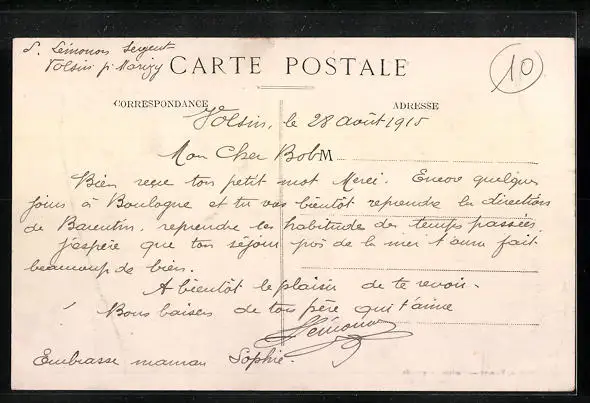 S. Lémonon Sergent
Volsin p. Marizy
CARTE POSTALE
10
CORRESPONDANCE
ADRESSE
Volsin, le 28 août 1915
Mon Cher Bob
M
Bien reçu ton petit mot Merci. Encore quelques
jours à Boulogne et tu vas bientôt reprendre la direction
de Barentin, reprendre les habitudes des temps passées,
j'espère que ton séjour près de la mer t'aura fait
beaucoup de bien.
A bientôt le plaisir de te revoir.
Bons baisers de ton père qui t'aime
Lémonon
Embrasse maman Sophie.